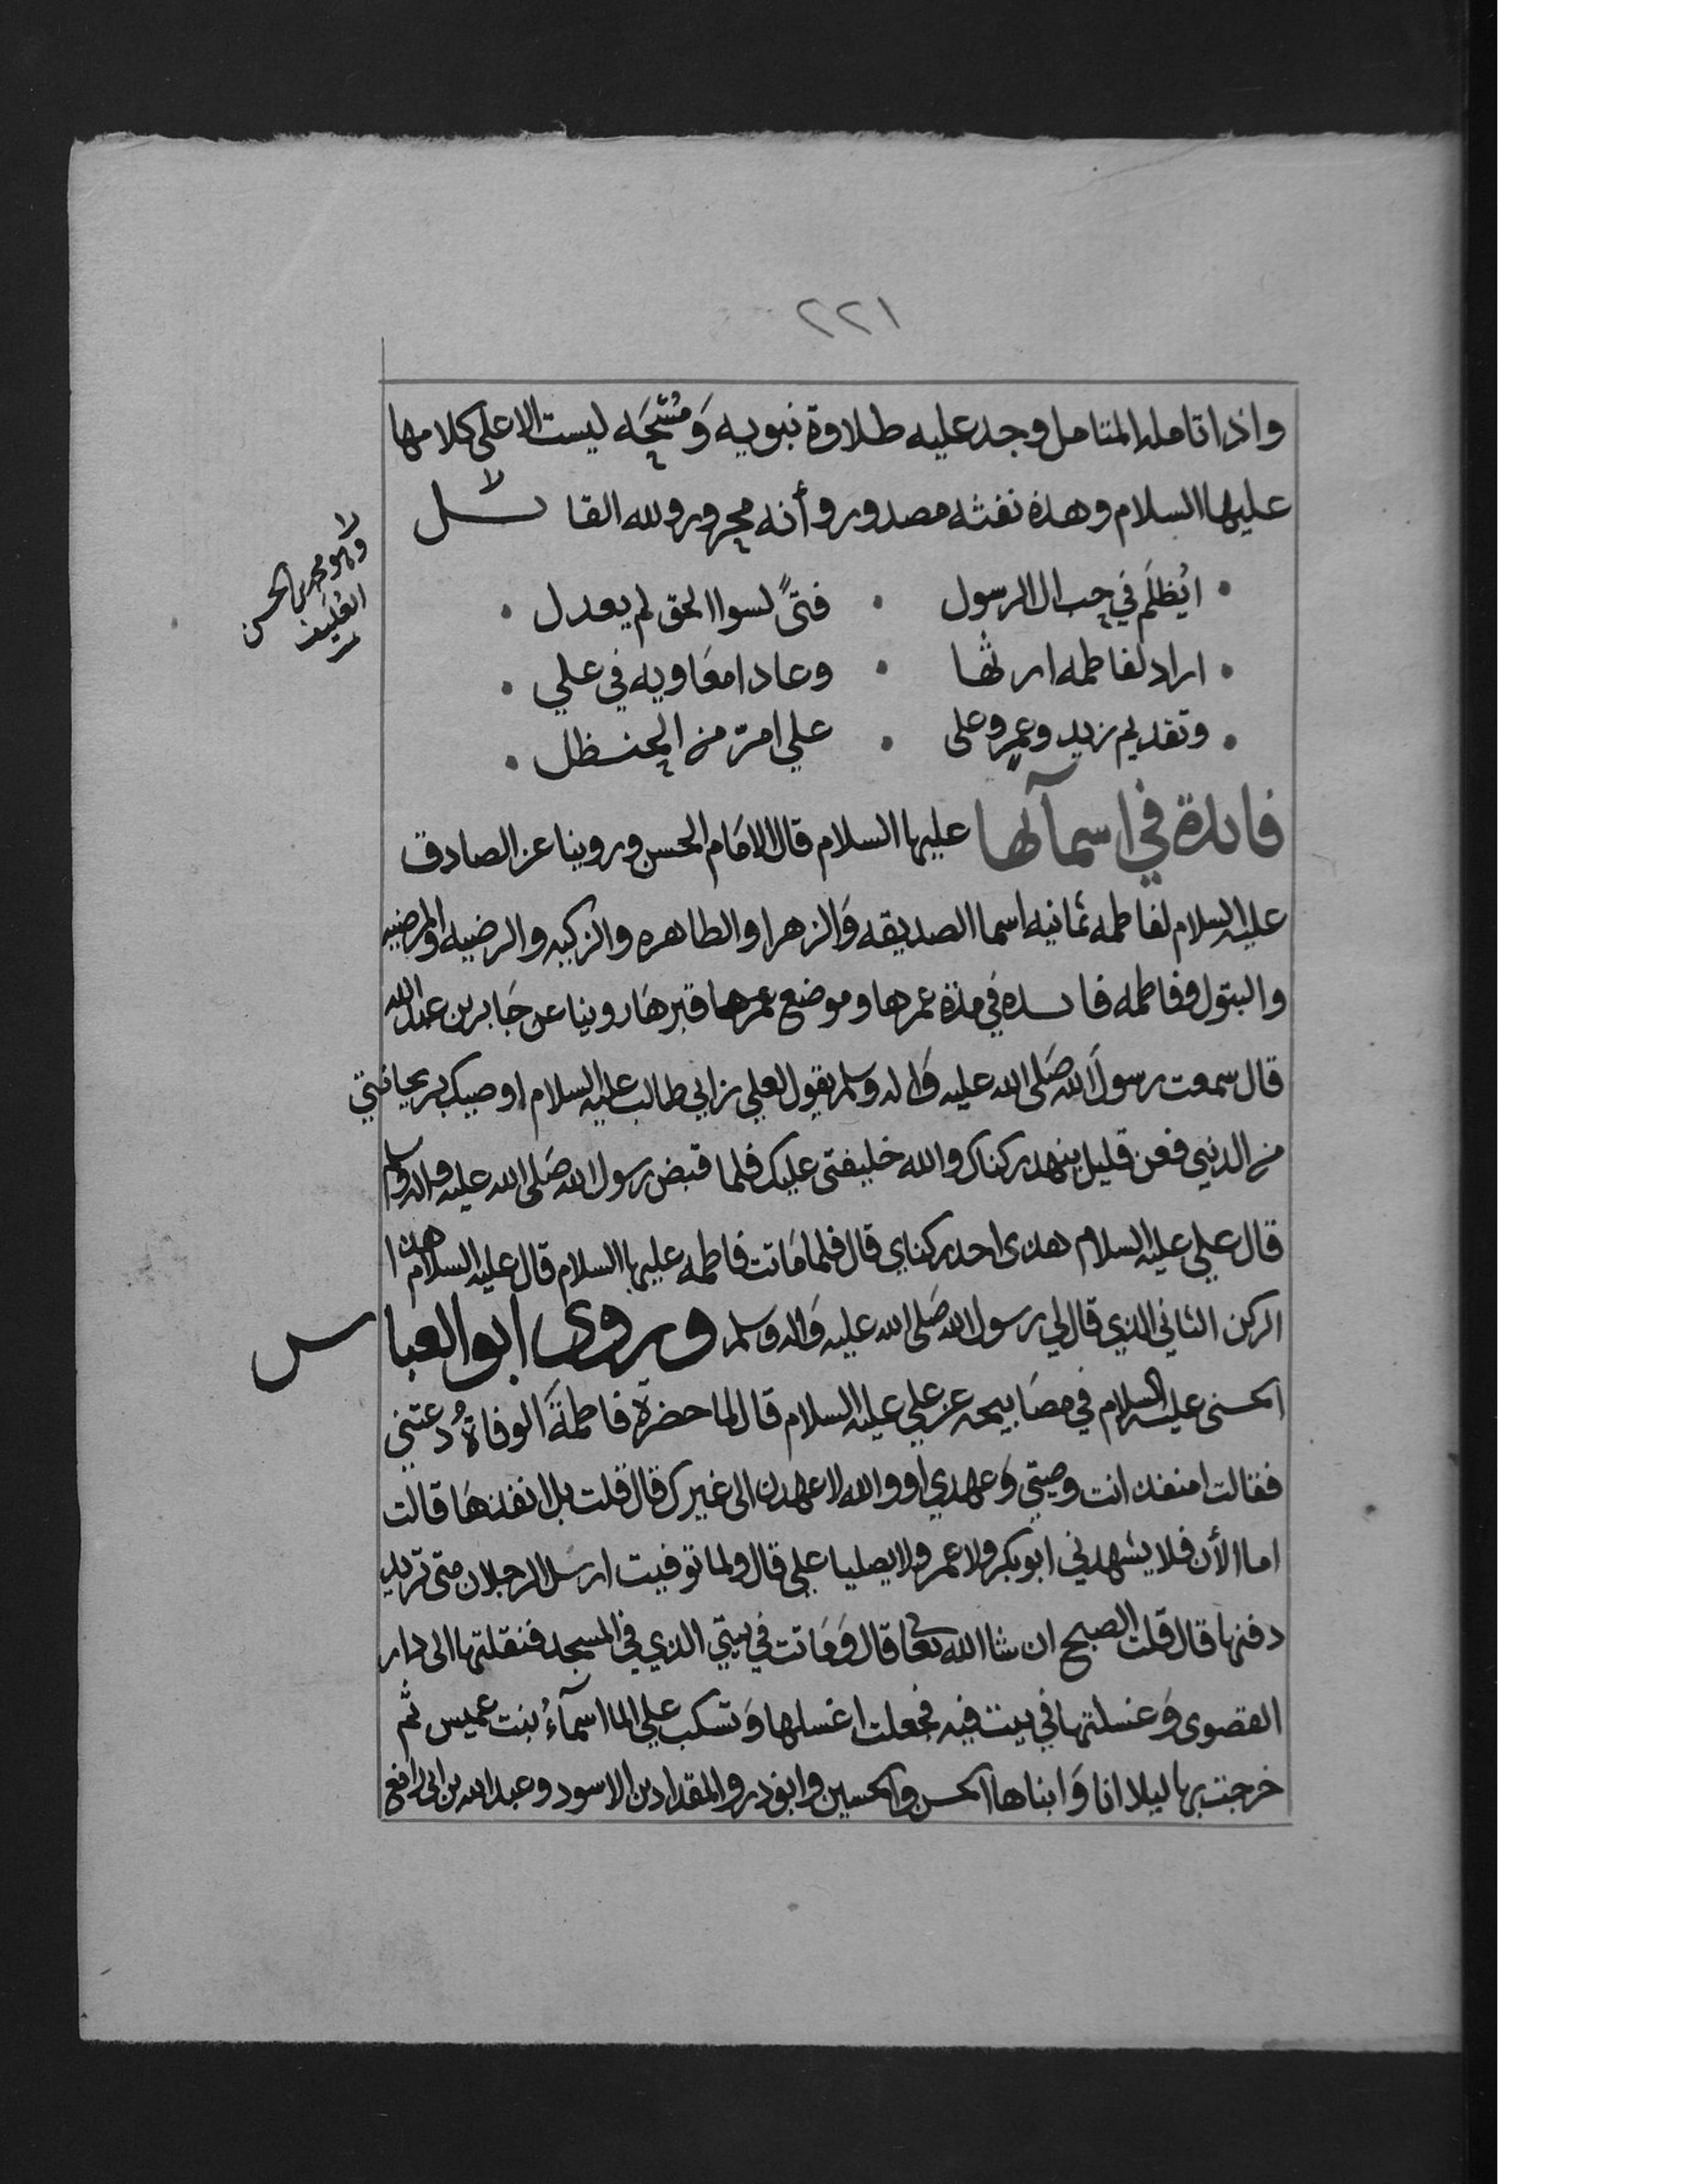 ٢٢١
واذا تامله المتامل وجد عليه طلاوة نبويه وَمُسْحَه ليست الا على كلامها
عليها السلام وهذه نفثه مصدور وأنه محرور ولله القا ئل
• ايُظلَم في حب ال الرسول • فتىً لسوا الحق لم يعدل •
• اراد لفاطمه ارثها • وعادا معَاويه في علي •
• وتقديم زيد وعمرٍو على • علي امرّ من الحنظل •
ولا وهو محمد بن الحسن
العُليَف
فائدة في اسمآئها عليها السلام قال الامَام المحسن وروينا عن الصادق
عليه السلام لفاطمه ثمانيه اسما الصديقه وَالزهرا والطاهره والزكيه والرضيه والمرضيه
والبتول وفاطمه فائده في مدّة عمرها وموضع قبرهَا روينا عن جَابر بن عبد الله
قال سمعت رسول الله صَلى الله عليه وَاله وسلم يقول لعلي بن ابي طالب عليه السلام اوصيك بريحانتي
من الدنيى فعن قليل ينهد ركناك والله خليفتى عليك فلما قبض رسول الله صَلى الله عليه واله وسلم
قال علي عليه السلام هذى احد ركناي قال فلما مَاتت فاطمه عليها السلام قال عليه السلام هذا
الركن الثاني الذي قال لي رسول الله صَلى الله عليه وَاله وَسلم وروى ابو العباس
الحسنى عليه السلام في مصَابيحه عن علي عليه السلام قال لما حضرة فاطمةَ الوفاةُ دعتني
فقالت امنفذ انت وصيتي وَعهدي او والله لاعهدن الى غيرك قال قلت بل انفذهَا قالت
اما الأن فلا يشهدني ابو بكر ولا عمر ولا يصليا علي قال ولما توفيت ارسل الرجلان متى تريد
دفنها قال قلت الصبح ان شا الله تعالى قال وَمَاتت في بيتي الذي في المسجد فنقلتها الى دار
القصوى وَغسلتها في بيت فيه فجعلت اغسلها وَتسكب علي الما اسمآءُ بنت عميس ثم
خرجت بها ليلا انا وَابناها الحسن والحسين وابوذر والمقداد بن الاسود وعبد الله بن ابى رافع